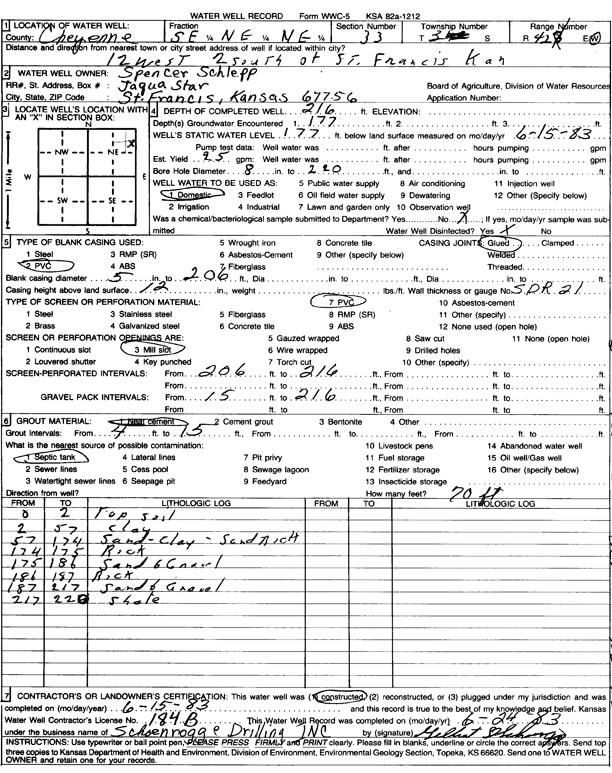 WATER WELL RECORD Form WWC-5 KSA 82a-1212
1 LOCATION OF WATER WELL: Fraction Section Number Township Number Range Number
County: Cheyenne SE ¼ NE ¼ NE ¼ 33 T S R E/W
Distance and direction from nearest town or city street address of well if located within city?
12 west 2 south of St. Francis Kan
2 WATER WELL OWNER: Spencer Schlepp
RR#, St. Address, Box #: Jaqua Star Board of Agriculture, Division of Water Resources
City, State, ZIP Code: St. Francis, Kansas 67756 Application Number:
3 LOCATE WELL'S LOCATION WITH AN "X" IN SECTION BOX:
N
NW NE X
W E
SW SE
S
1 Mile
4 DEPTH OF COMPLETED WELL 216 ft. ELEVATION:
Depth(s) Groundwater Encountered 1 177 ft. 2 ft. 3 ft.
WELL'S STATIC WATER LEVEL 177 ft. below land surface measured on mo/day/yr 6-15-83
Pump test data: Well water was ft. after hours pumping gpm
Est. Yield 25 gpm: Well water was ft. after hours pumping gpm
Bore Hole Diameter 8 in. to 220 ft., and in. to ft.
WELL WATER TO BE USED AS: 5 Public water supply 8 Air conditioning 11 Injection well
1 Domestic 3 Feedlot 6 Oil field water supply 9 Dewatering 12 Other (Specify below)
2 Irrigation 4 Industrial 7 Lawn and garden only 10 Observation well
Was a chemical/bacteriological sample submitted to Department? Yes No X; If yes, mo/day/yr sample was submitted
Water Well Disinfected? Yes X No
5 TYPE OF BLANK CASING USED: 5 Wrought iron 8 Concrete tile CASING JOINTS: Glued Clamped
1 Steel 3 RMP (SR) 6 Asbestos-Cement 9 Other (specify below) Welded
2 PVC 4 ABS 7 Fiberglass Threaded
Blank casing diameter 5 in. to 206 ft., Dia in. to ft., Dia in. to ft.
Casing height above land surface 12 in., weight lbs./ft. Wall thickness or gauge No. SDR 21
TYPE OF SCREEN OR PERFORATION MATERIAL: 7 PVC 10 Asbestos-cement
1 Steel 3 Stainless steel 5 Fiberglass 8 RMP (SR) 11 Other (specify)
2 Brass 4 Galvanized steel 6 Concrete tile 9 ABS 12 None used (open hole)
SCREEN OR PERFORATION OPENINGS ARE: 5 Gauzed wrapped 8 Saw cut 11 None (open hole)
1 Continuous slot 3 Mill slot 6 Wire wrapped 9 Drilled holes
2 Louvered shutter 4 Key punched 7 Torch cut 10 Other (specify)
SCREEN-PERFORATED INTERVALS: From 206 ft. to 216 ft., From ft. to ft.
From ft. to ft., From ft. to ft.
GRAVEL PACK INTERVALS: From 15 ft. to 216 ft., From ft. to ft.
From ft. to ft., From ft. to ft.
6 GROUT MATERIAL: 1 Neat cement 2 Cement grout 3 Bentonite 4 Other
Grout Intervals: From 4 ft. to 15 ft., From ft. to ft., From ft. to ft.
What is the nearest source of possible contamination: 10 Livestock pens 14 Abandoned water well
1 Septic tank 4 Lateral lines 7 Pit privy 11 Fuel storage 15 Oil well/Gas well
2 Sewer lines 5 Cess pool 8 Sewage lagoon 12 Fertilizer storage 16 Other (specify below)
3 Watertight sewer lines 6 Seepage pit 9 Feedyard 13 Insecticide storage
Direction from well? How many feet? 70 ft
FROM TO LITHOLOGIC LOG FROM TO LITHOLOGIC LOG
0 2 Top soil
2 57 Clay
57 174 Sand-Clay-Sand Rick
174 175 Rick
175 186 Sand & Gravel
186 187 Rick
187 217 Sand & Gravel
217 220 Shale
7 CONTRACTOR'S OR LANDOWNER'S CERTIFICATION: This water well was (1) constructed, (2) reconstructed, or (3) plugged under my jurisdiction and was
completed on (mo/day/year) 6-15-83 and this record is true to the best of my knowledge and belief. Kansas
Water Well Contractor's License No. 184B This Water Well Record was completed on (mo/day/yr) 6-24-83
under the business name of Schoenrogge Drilling INC by (signature)
INSTRUCTIONS: Use typewriter or ball point pen, PLEASE PRESS FIRMLY and PRINT clearly. Please fill in blanks, underline or circle the correct answers. Send top
three copies to Kansas Department of Health and Environment, Division of Environment, Environmental Geology Section, Topeka, KS 66620. Send one to WATER WELL
OWNER and retain one for your records.